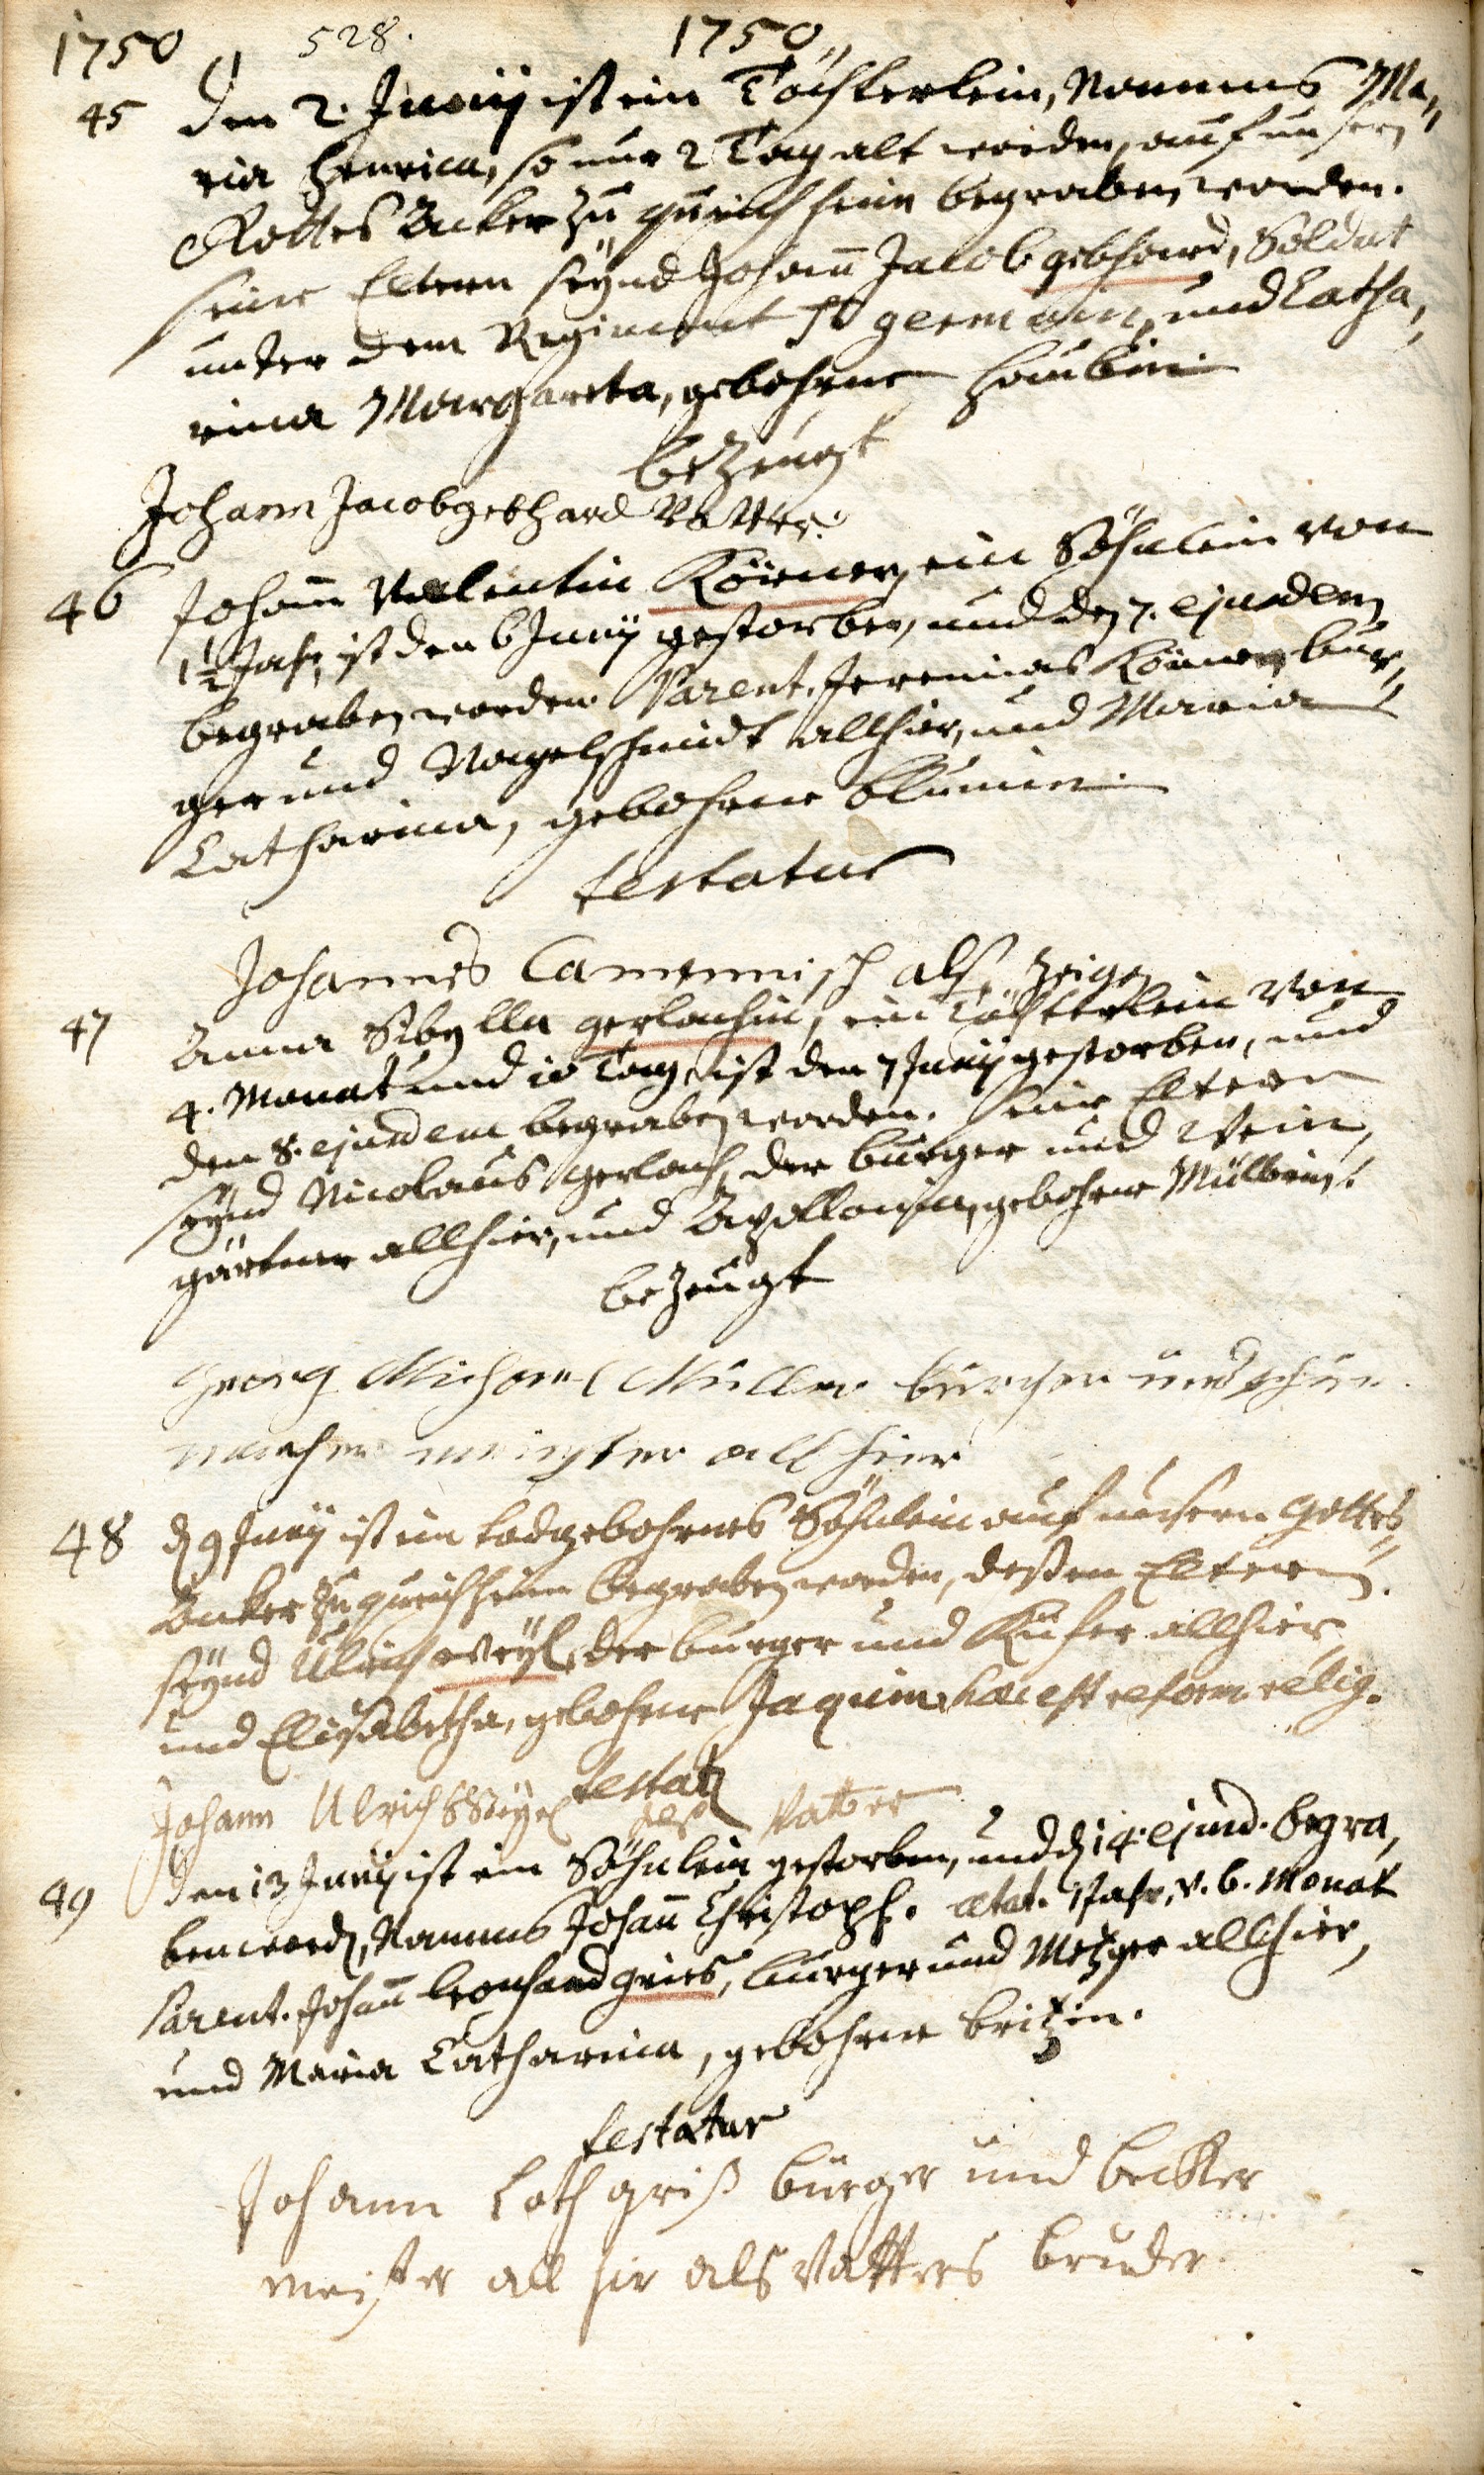 1750 528. 1750
45 den 2. Junij ist ein Töchterlein, Namens Ma-
ria Henrica, so nur 2 Tag alt worden, auf unsern
Gottes Acker zu Queichheim begraben worden.
seine Eltern seynd Johann Jacob gebhard, Soldat
unter dem Regiment St germain, und Catha,
rina Margareta, gebohrne Haubin
bezeugt
Johann Jacob gebhard Vatter.
46 Johann Valentin Körner, ein Söhnlein von
1 1/2 Jahr, ist den 6 Junij gestorben, und den 7. ejusdem
begraben worden. Parent. Jeremias Körner, bur-
ger und Nagelschmidt allhier, und Maria
Catharina, gebohrne Blumin.
testatur
Johannes Camennisch als Zeige
47 Anna Sibylla gerlachin, ein Töchterlein von
4. Monat und 10 Tag, ist den 7 Junij gestorben, und
den 8. ejusdem begraben worden. seine Eltern
seynd Nicolaus gerlach, der burger und Wein,
gärtner allhier, und Apollonia, gebohrne Müllerin.
bezeugt
Georg Michael Müller burger und schu
macher meister all hier
48 d 9 Junij ist ein todgebohrnes Söhnlein auf unsern Gottes-
Acker zu queichheim begraben worden, dessen Eltern
seynd Ulrich Weyl, der burger und Küfer allhier,
und Elisabetha, gebohrne Jaquin. haec est reform. relig.
testatr
Johann Ulrich Weyel als Vatter
49 den 13 Junij ist ein Söhnlein gestorben, und d 14. ejusd. begra,
ben word, Namens Johann Christoph. aetat. 1 Jahr, v. 6. Monat
Parent. Johann Leonhard gries, burger und Metzger allhier,
und Maria Catharina, gebohrne britzin.
testatur
Johann Loth griß bürger und becker
meister all hir als Vatters bruder